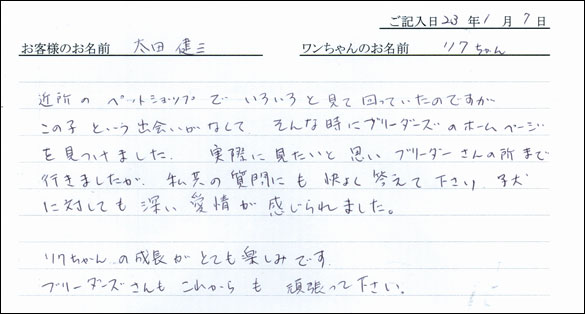 ご記入日 23 年 1 月 7 日
お客様のお名前 太田 健三 ワンちゃんのお名前 リクちゃん
近所の ペットショップで いろいろと見て回っていたのですが
この子という出会いがなくて そんな時にブリーダーズのホームページ
を見つけました. 実際に見たいと思い ブリーダーさんの所まで
行きましたが、私共の質問にも 快よく答えて下さり、子犬
に対しても 深い愛情が 感じられました。
リクちゃんの成長がとても楽しみです.
ブリーダーズさんも これからも 頑張って下さい.